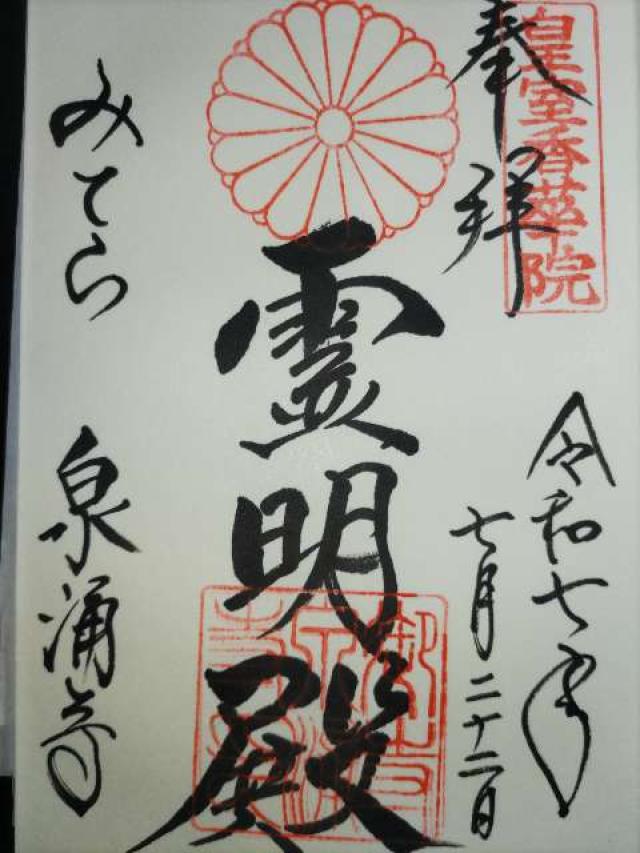 皇室香華院
奉拝
令和七年
七月二十二日
霊明殿
みてら
泉涌寺